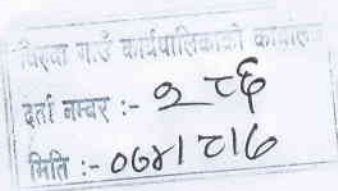 बिरुवा गाउँ कार्यपालिकाको कार्यालय
दर्ता नम्बर :- २८६
मिति :- ०७४।८।७